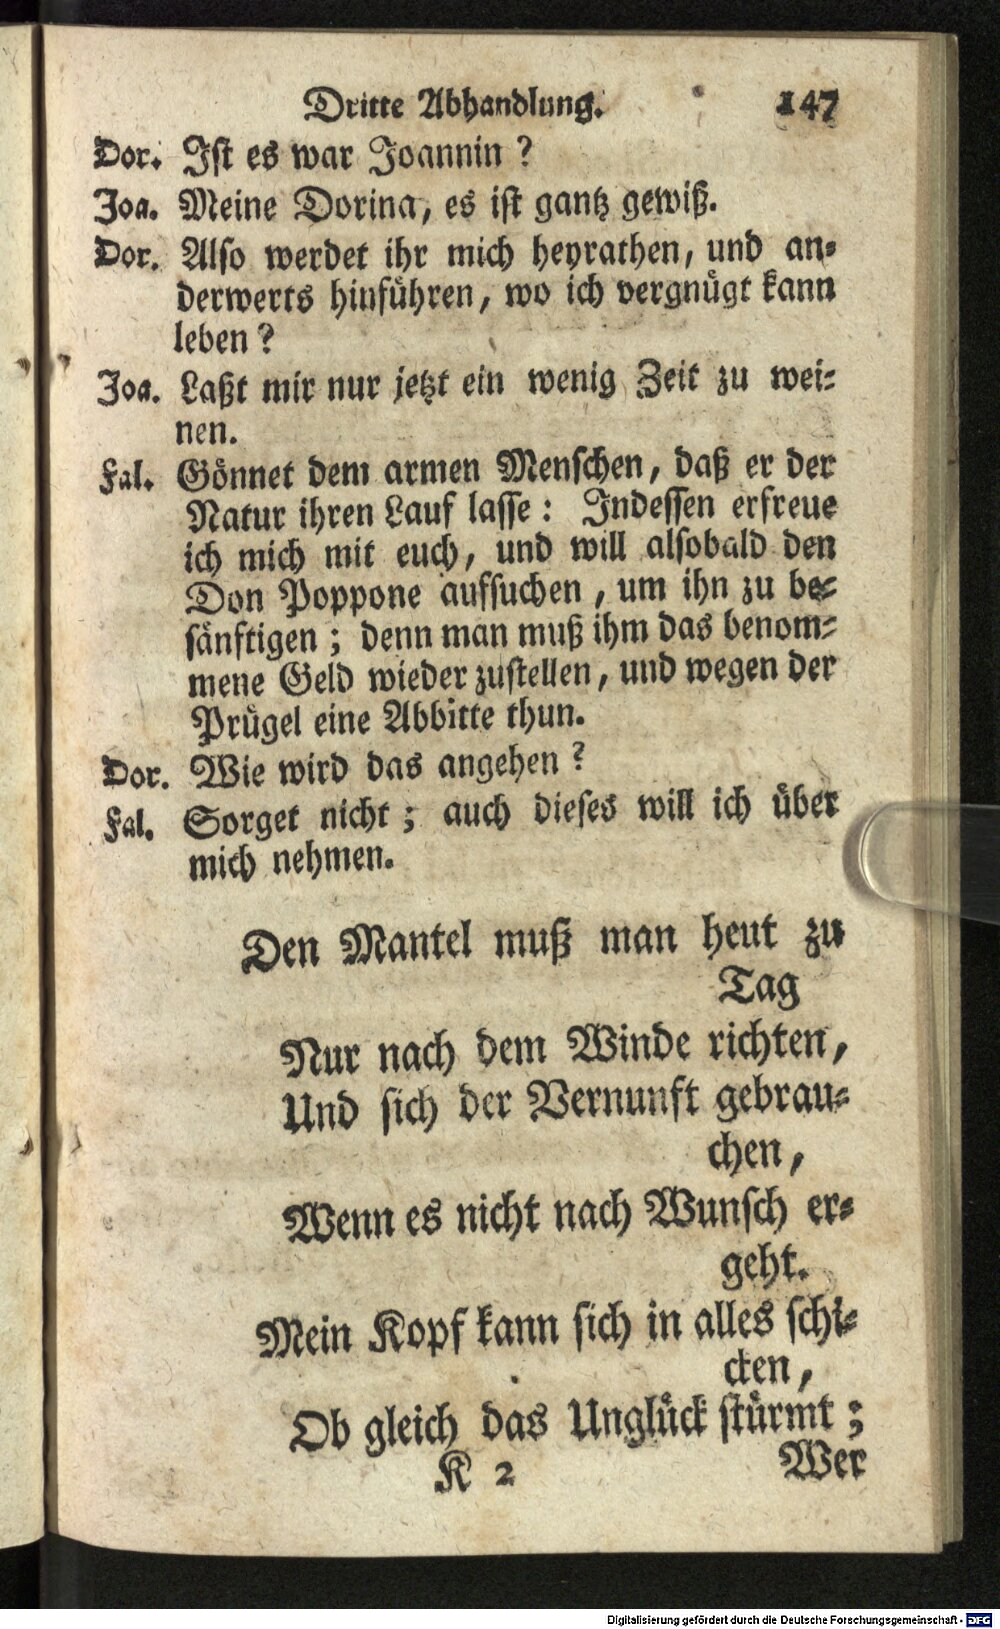 Dritte Abhandlung. 147
Dor. Ist es war Joannin?
Joa. Meine Dorina, es ist gantz gewiß.
Dor. Also werdet ihr mich heyrathen, und an-
derwerts hinführen, wo ich vergnügt kann
leben?
Joa. Laßt mir nur jetzt ein wenig Zeit zu wei-
nen.
Fal. Gönnet dem armen Menschen, daß er der
Natur ihren Lauf lasse: Indessen erfreue
ich mich mit euch, und will alsobald den
Don Poppone aufsuchen, um ihn zu be-
sänftigen; denn man muß ihm das benom-
mene Geld wieder zustellen, und wegen der
Prügel eine Abbitte thun.
Dor. Wie wird das angehen?
Fal. Sorget nicht; auch dieses will ich über
mich nehmen.
Den Mantel muß man heut zu
Tag
Nur nach dem Winde richten,
Und sich der Vernunft gebrau-
chen,
Wenn es nicht nach Wunsch er-
geht.
Mein Kopf kann sich in alles schi-
cken,
Ob gleich das Unglück stürmt;
K 2 Wer
Digitalisierung gefördert durch die Deutsche Forschungsgemeinschaft - DFG